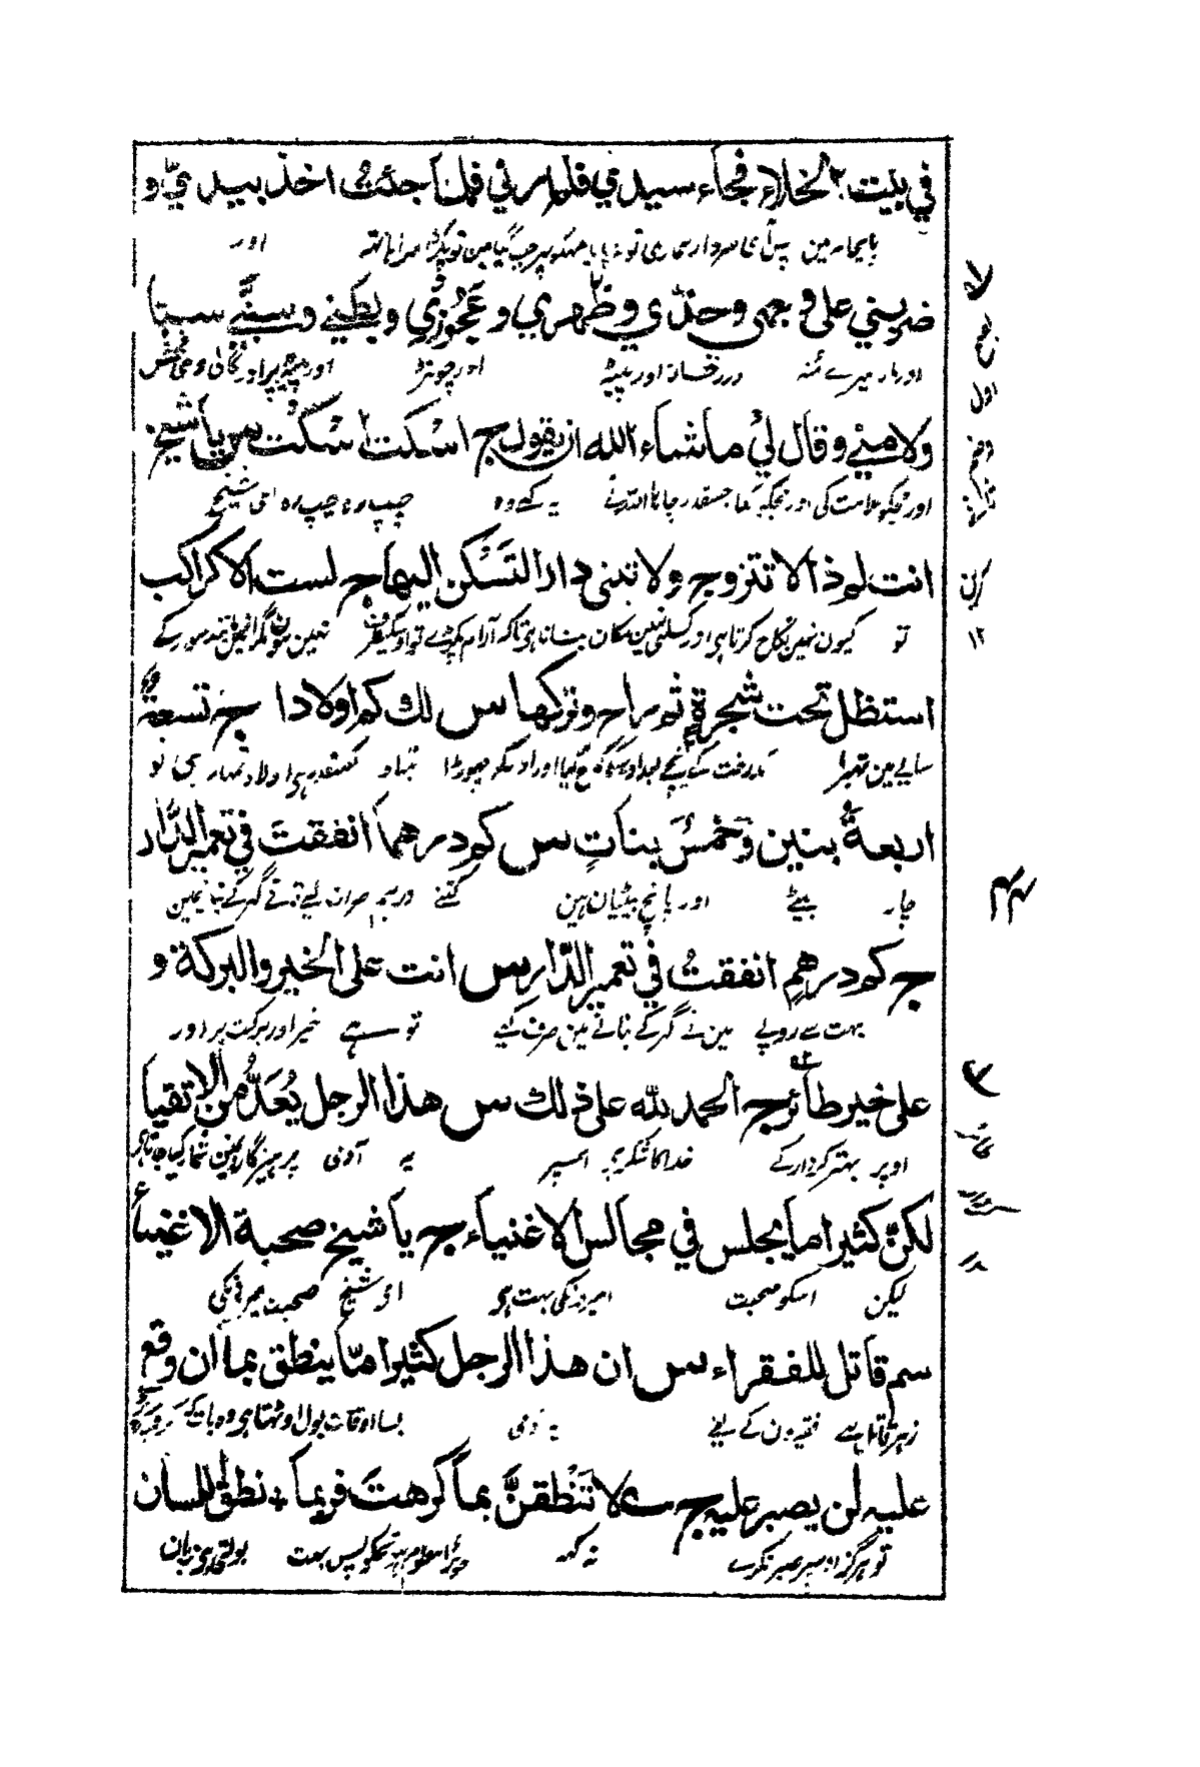 في بيت الخلاء فجاء سيدي فلم يرني فلما جئت اخذ بيدي و
پایخانہ مین پس آئ سردار ہماری تو نہ پایا مہکو پہر جب گیا مین تو پکڑا میرا ہاتھ اور
ضربني على وجهى وخدّي وظهري وعَجُوزي وبطني وسبني سبا
اور مار میرے منہ اور رخسارہ اور پیٹھ اور چوتڑ اور پیٹ پر اور گالی دی
ولامني وقال لي ماشاء الله ان يقول ج اسكت اسكت س يا شيخ
اور مجکو ملامت کی اور مجکو کہا جسقدر چاہا اللہ نے یہ کہے وہ چپ رہ چپ رہ ای شیخ
انت لم ذا لا تتزوج ولا تبنى دارا لتسكن اليها ج لست الا كراكب
تو کیون نہین نکاح کرتا ہی اور کسلئے نہین مکان بناتا ہی تاکہ آرام پکڑے تو اوسکیطرف نہین ہون مگر مانند سور کے
استظل تحت شجرة ثم راح وتركها س لك كم اولادا ج تسعة
سایے مین ٹہرا درخت کے نیچے اور اوسکو چھوڑا تیری کسقدر ہی اولاد تمہاری نو
اربعة بنين وخمس بنات س كم درهما انفقت في تعمير الدار
چار بیٹے اور پانچ بیٹیان ہین کتنے درہم صرف کیے تونے گھر کے بنانیمین
ج كم درهم انفقت في تعمير الدار س انت على الخير والبركة و
بہت سے روپے مین نے گھر کے بنانے مین صرف کیے تو ہے خیر اور برکت پر اور
على خير طائر ج الحمد لله على ذلك س هذا الرجل يُعَدُّ من الاتقيا
اوپر بہتر کردار کے خدا کا شکر ہی اسپر یہ آدمی پرہیزگارونمین شمار کیا جاتا ہی
لكنّ كثيرا ما يجلس في مجالس الاغنياء ج يا شيخ صحبة الاغنيا
لیکن اسکو صحبت امیرونکی بہت ہی ای شیخ صحبت امیرونکی
سم قاتل للفقراء س ان هذا الرجل كثيرا ما ينطق بما ان وقع
زہر قاتل ہے فقیرون کے لیے یہ آدمی بسا اوقات بول اوٹھتا ہی وہ بات کہ
عليه لن يصبر عليه ج لا تَنْطِقَنَّ بما كرهت فربما نطق اللسان
تو ہرگز اسپر صبر نکرے نہ کہہ جو برا معلوم ہو تجکو پس بہت بولتی ہی زبان
اول
۱۲